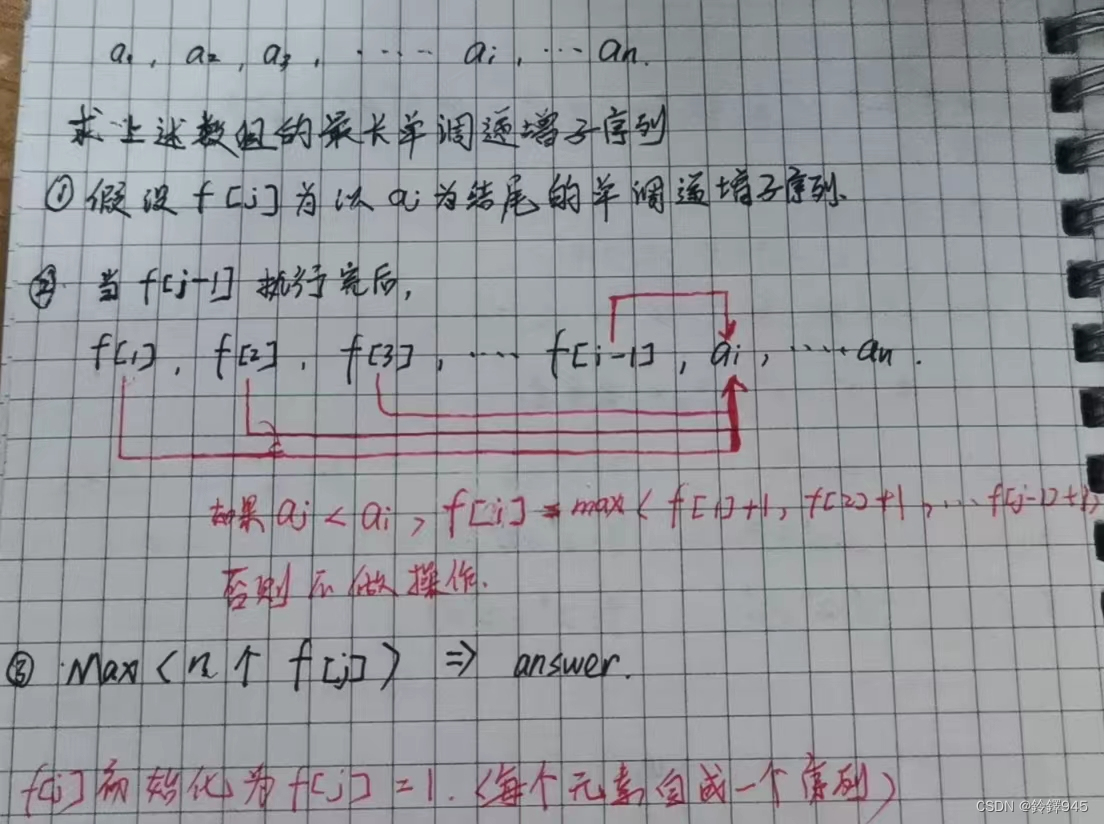 a₁, a₂, a₃, ····· aᵢ, ··· aₙ.
求上述数组的最长单调递增子序列
① 假设 f[j] 为以 aj 为结尾的单调递增子序列.
② 当 f[j-1] 执行完后,
f[1], f[2], f[3], ···· f[i-1], aᵢ, ····· aₙ.
如果 aj < ai, f[i] = max( f[1]+1, f[2]+1, ... f[j-1]+1)
否则不做操作.
③ Max(n个 f[j]) ⇒ answer.
f[j] 初始化为 f[j] = 1. (每个元素自成一个序列)
CSDN @鈴鐸945